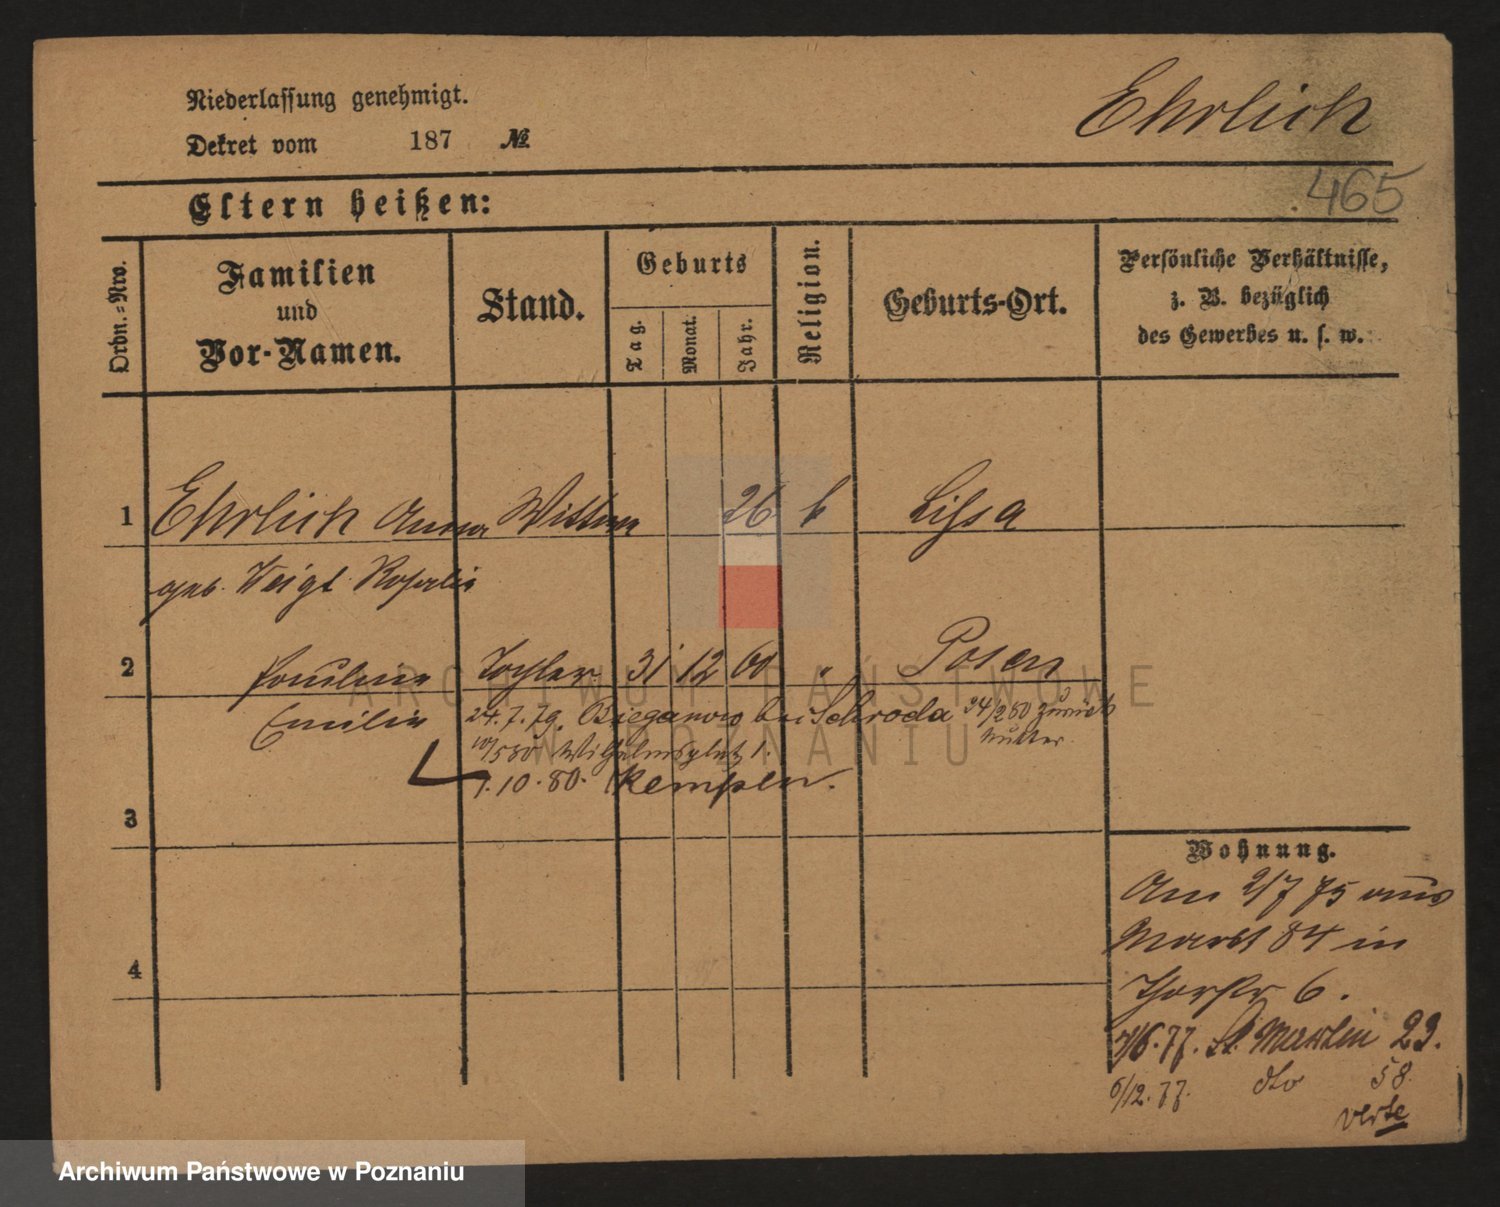 Niederlassung genehmigt.
Dekret vom 187 №
Ehrlich
465
Eltern heißen:
Ordn.-Nro.
Familien
und
Vor-Namen.
Stand.
Geburts
Tag.
Monat.
Jahr.
Religion.
Geburts-Ort.
Persönliche Verhältnisse,
z. B. bezüglich
des Gewerbes u. s. w.
1 Ehrlich Anna Wittwe 26 k Lissa
geb. Weigt Rosalie
2 Pauline Tochter 31 12 60 " Posen
Emilie 24.7.79. Bieganowo bei Schroda 24/2 80 zurück
Mutter.
10/5 80 Wilhelmsplatz 1.
1.10.80. Kempen.
3
Wohnung.
Am 2/7 75 aus
Markt 84 in
Thorstr 6.
4
/6.77. St. Martin 23.
6/12.77. dto 58.
verte
ARCHIWUM PAŃSTWOWE
W POZNANIU
Archiwum Państwowe w Poznaniu